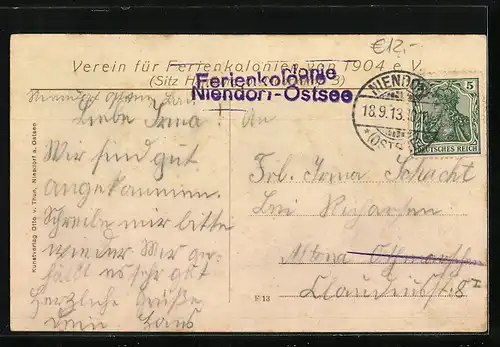 €12,-
Verein für Ferienkolonien von 1904 e.V.
(Sitz H
Ferienkolonie
Niendorf-Ostsee
NIENDORF
18.9.13.
(OSTSEE)
5
DEUTSCHES REICH
Liebe Irma! An
Wir sind gut
angekommen.
Schreibe mir bitte
wieder Mir ge-
fällt es sehr gut
Herzliche Grüße
Dein Hans
Frl. Irma Schacht
bei
Altona Othmarschen
Claudiusstr. 8 I
Kunstverlag Otto v. Thun, Niendorf a. Ostsee
F 13